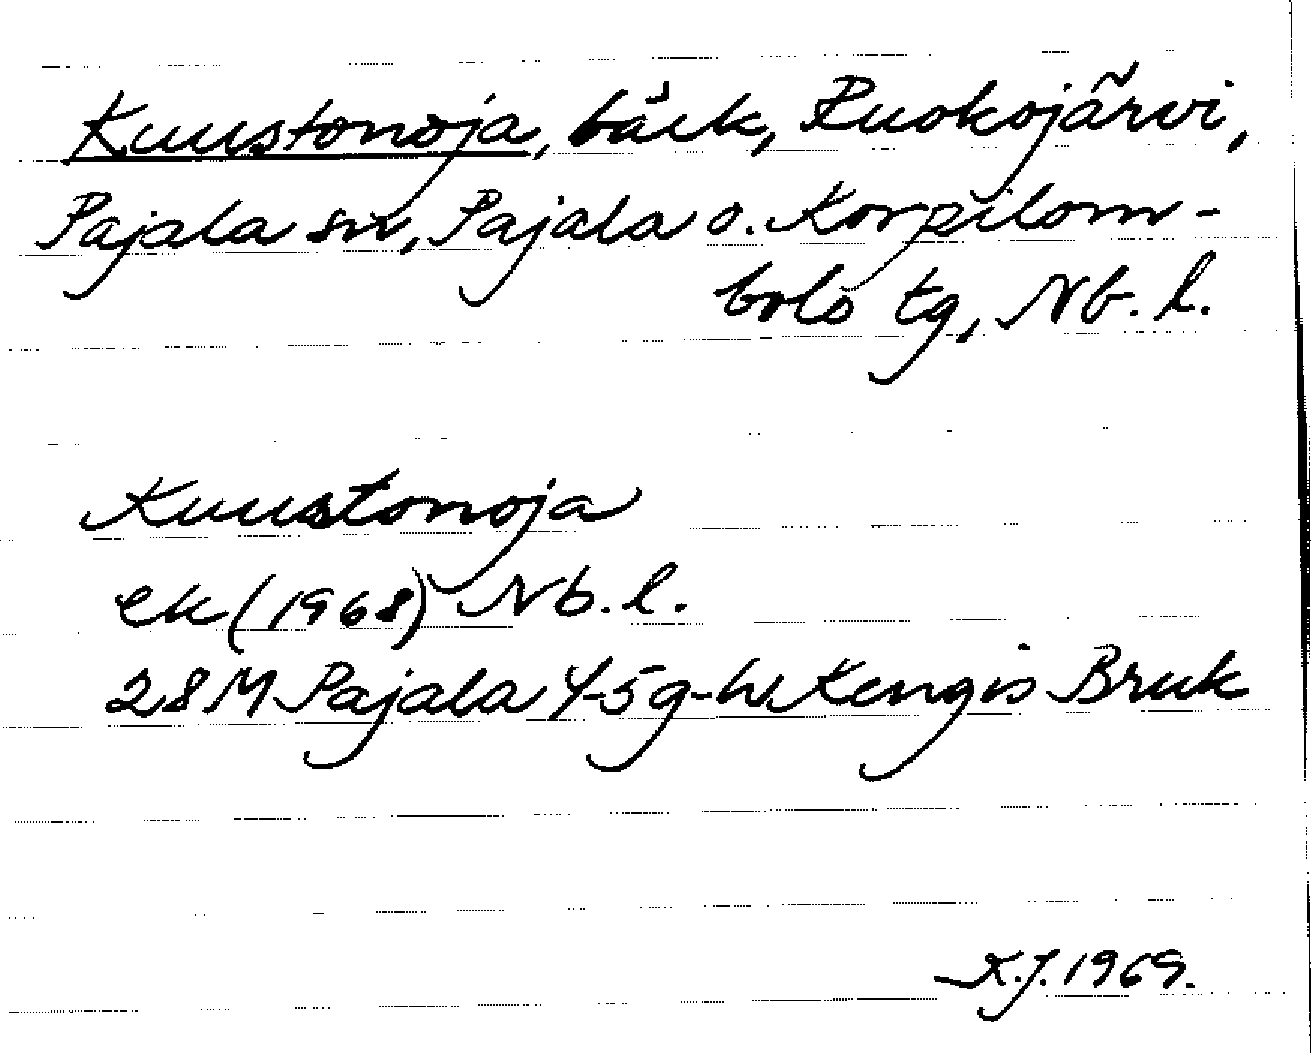 Kuustonoja, bäck, Ruokojärvi,
Pajala sn, Pajala o. Korpilom-
bolo tg, Nb. l.
Kuustonoja
ek (1968) Nb. l.
28 M Pajala 4-5 g-h Kengis Bruk
K.J. 1969.